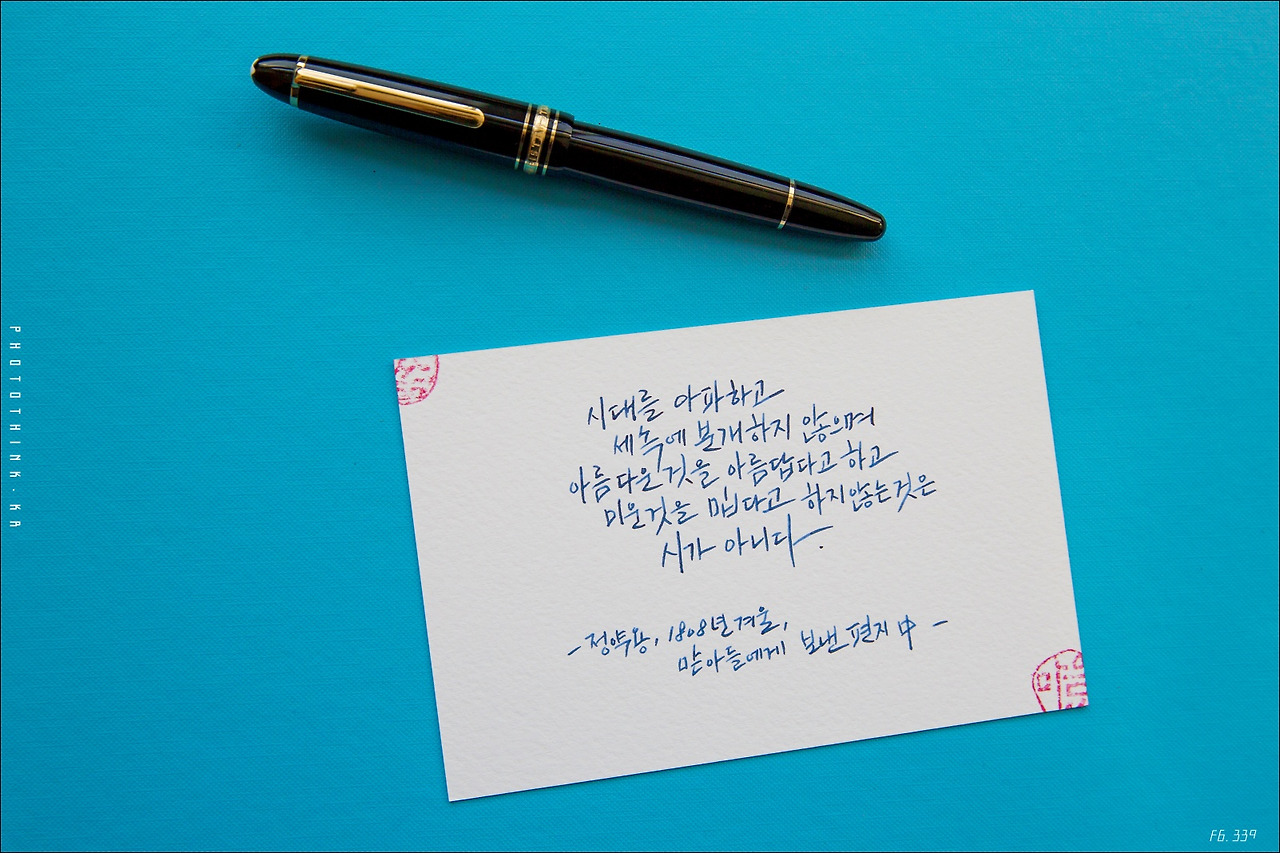 시대를 아파하고
세속에 분개하지 않으며
아름다운것을 아름답다고 하고
미운것을 밉다고 하지않는것은
시가 아니다.
- 정약용, 1808년 겨울,
맏아들에게 보낸 편지 中 -
PHOTOTHINK·KA
FG. 339